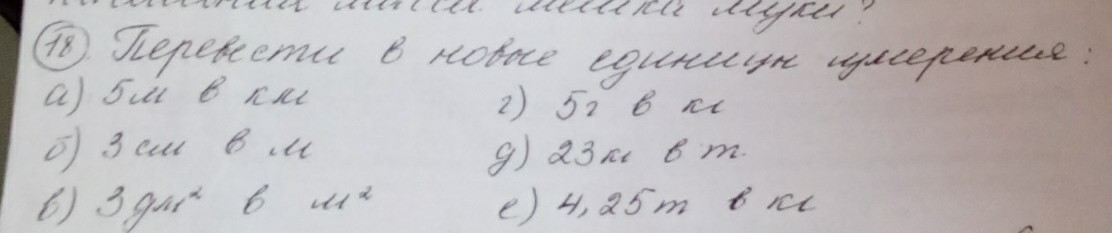 масса мешка муки?
18. Перевести в новые единицы измерения:
а) 5м в км г) 5г в кг
б) 3см в м д) 23кг в т.
в) 3дм² в м² е) 4,25т в кг